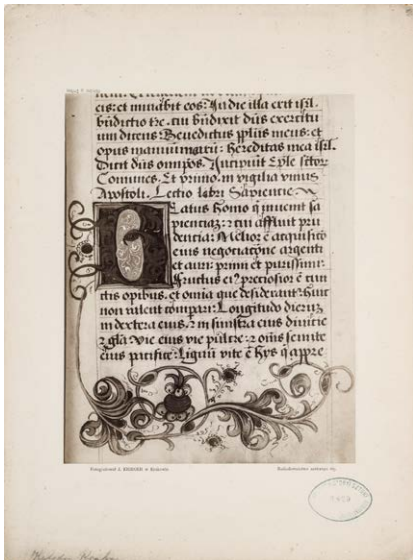 eis: et sanabit eos: In die illa erit isrl.
bn̄dictio tr̄e. cui bn̄dixit dn̄s exercitu
um dicens Benedictus pp̄lus meus: et
opus manuum mearū: hereditas mea isrl.
Dicit dn̄s omnpos. Incipiunt Ep̄le sctor
Comunes. Et primo. in vigilia vnius
Apostoli. Lectio libri Sapiencie
Beatus homo q̇ inuenit sa
pienciaz: ⁊ cui affluit pru
dencia: Melior ē acquisicō
eius negociatione argenti
et auri: primi et purissimi:
fructus ei⁹ preciosior ē cun
ctis opibus. et omīa que desiderant̄: huic
non valent comp̄ari: Longitudo dierum
in dextera eius. ⁊ in sinistra eius diuicie
⁊ gl̄a: vie eius vie pulcre: ⁊ oms semite
eius pacifice: Lignū vite ē hys q̇ appre
Fotografował J. KRIEGER w Krakowie.
Naśladownictwo zastrzega się.